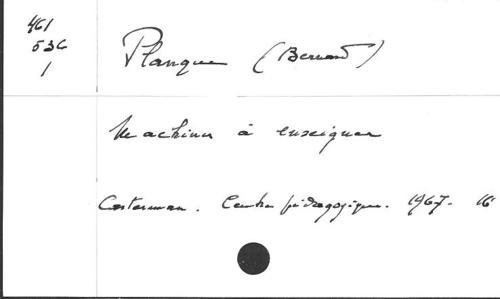 461
536
1
Planque (Bernard)
Machines à enseigner
Casterman. Centre pédagogique. 1967. 16°